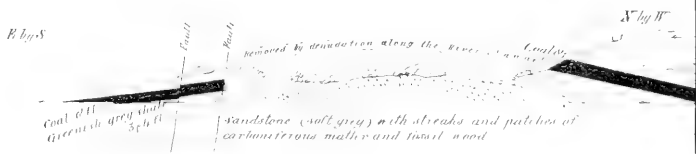 E by S
N by W
Fault
Fault
removed by denudation along the River
Coal
River
Coal 6 ft
Greenish grey shale
3 ft
sandstone (soft grey) with streaks and patches of
carboniferous matter and fossil wood